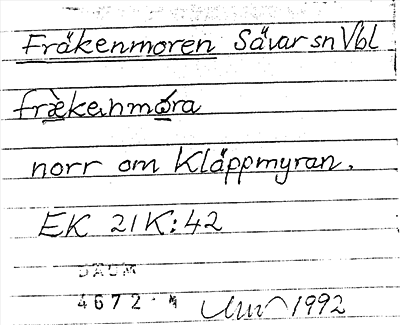 Fräkenmoren Sävar sn Vbl
fræ̀kanmóra
norr om Kläppmyran.
EK 21K:42
DAUM
4672
1992